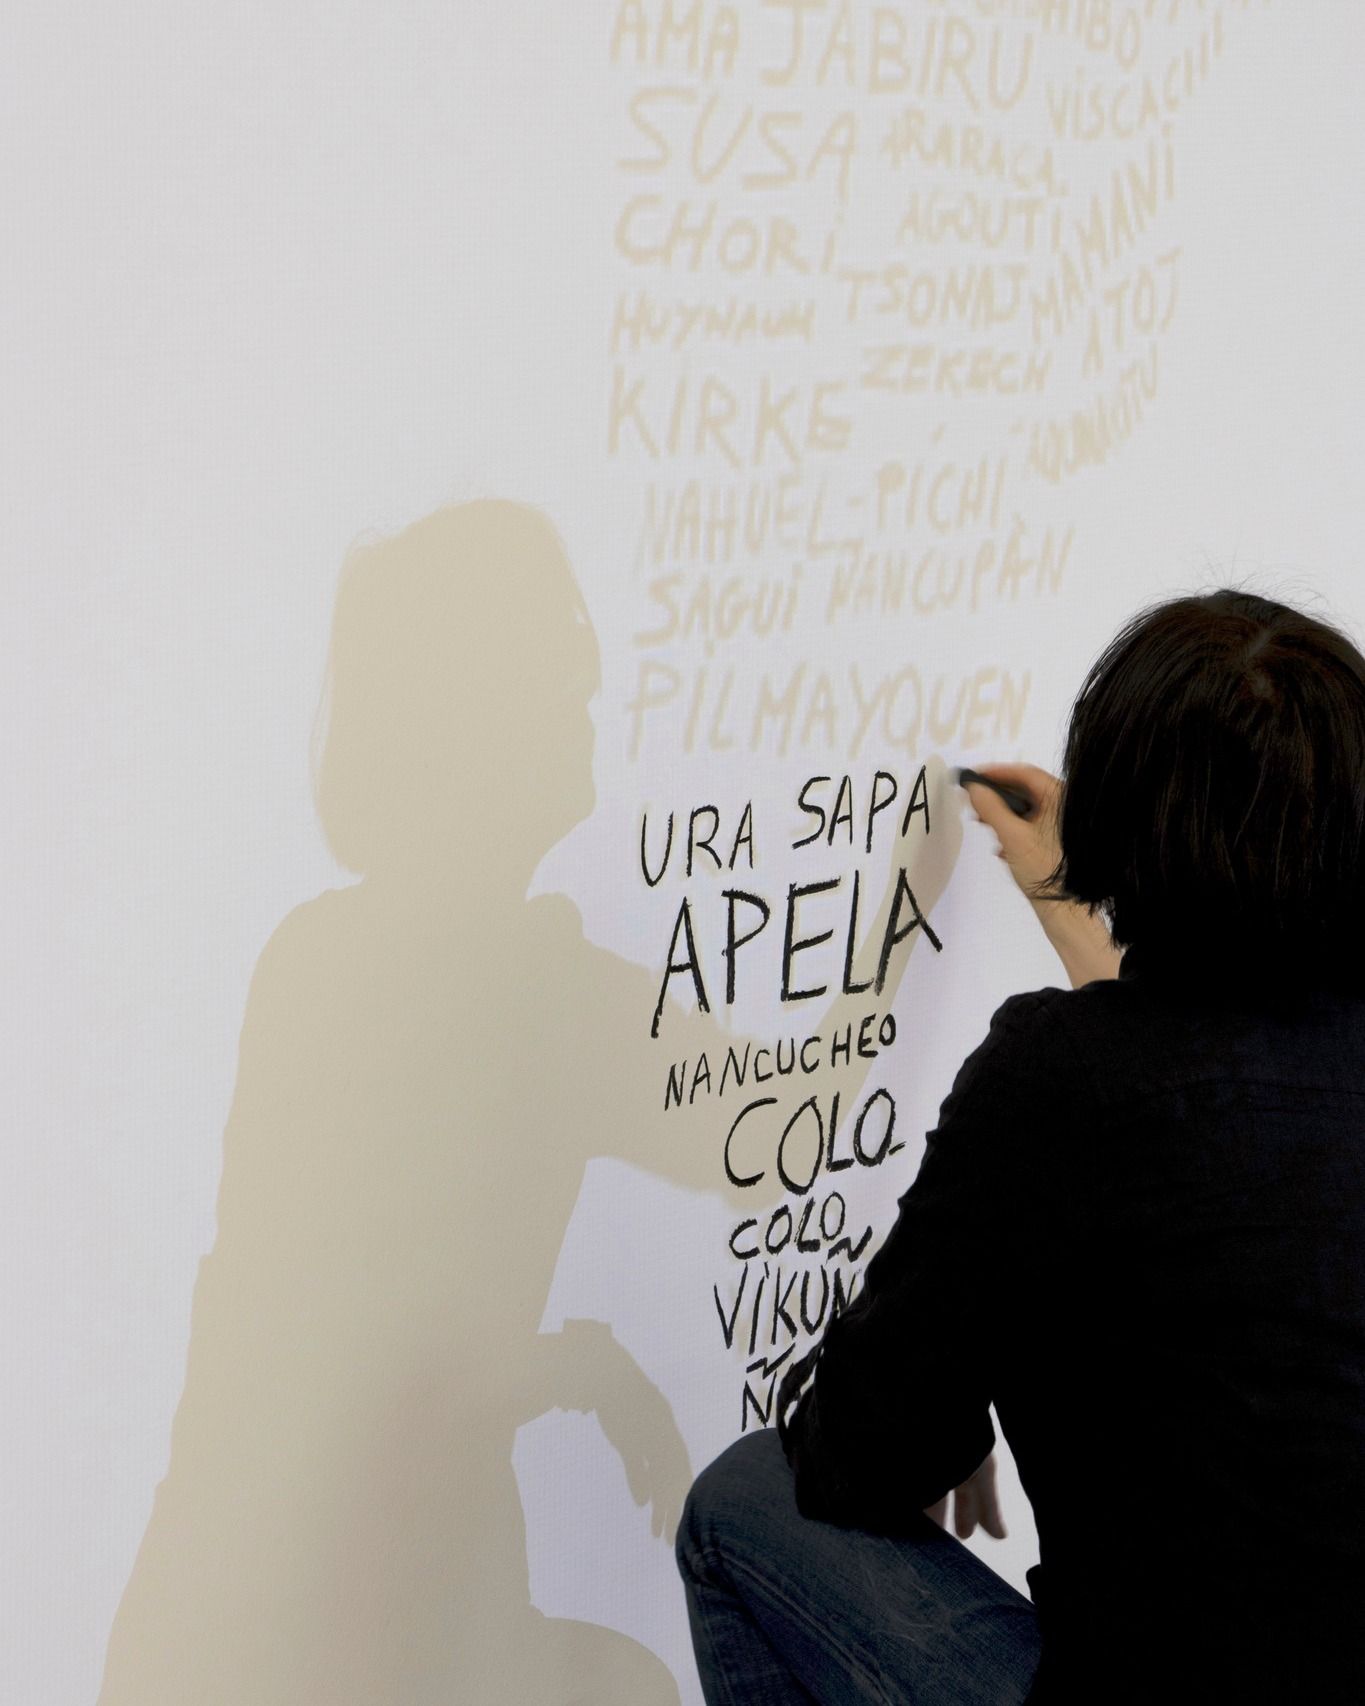 AMA JABIRU
VISCACH
SUSA ARARACA
CHORI AGOUTI MAMANI
TSONAJ ATOJ
KIRKE ZEKECH
NAHUEL-PICHI
SAGUI NANCUPÁN
PILMAYQUEN
URA SAPA
APELA
NANCUCHEO
COLO-
COLO
VIKUÑ